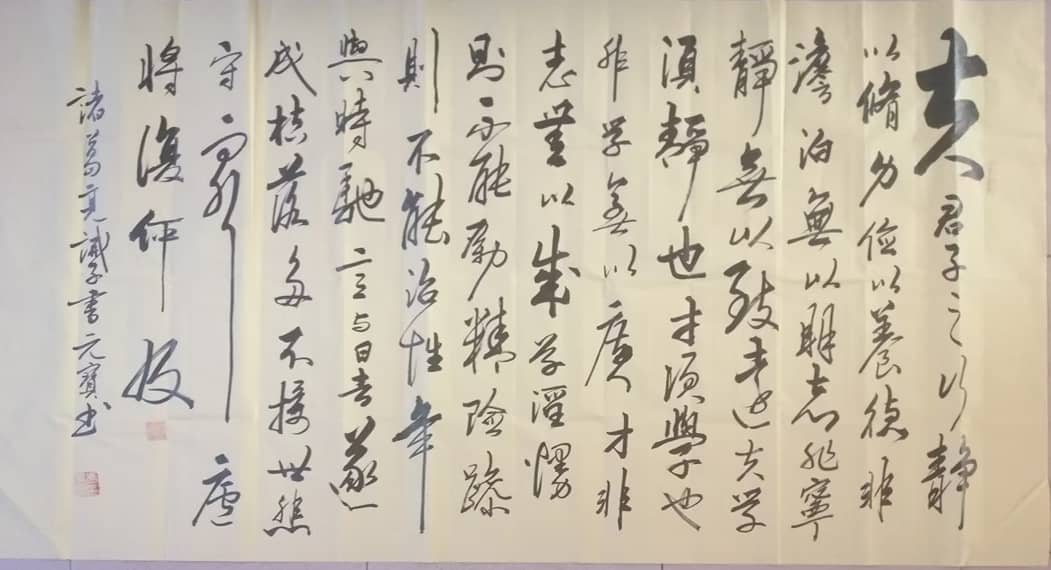 夫君子之行靜
以脩身儉以養德非
澹泊無以明志非寧
靜無以致遠夫学
須靜也才須學也
非学無以廣才非
志無以成学淫慢
則不能勵精險躁
則不能治性年
與時馳意与日去遂
成枯落多不接世悲
守窮廬
將復何及
諸葛亮誡子書元寶书